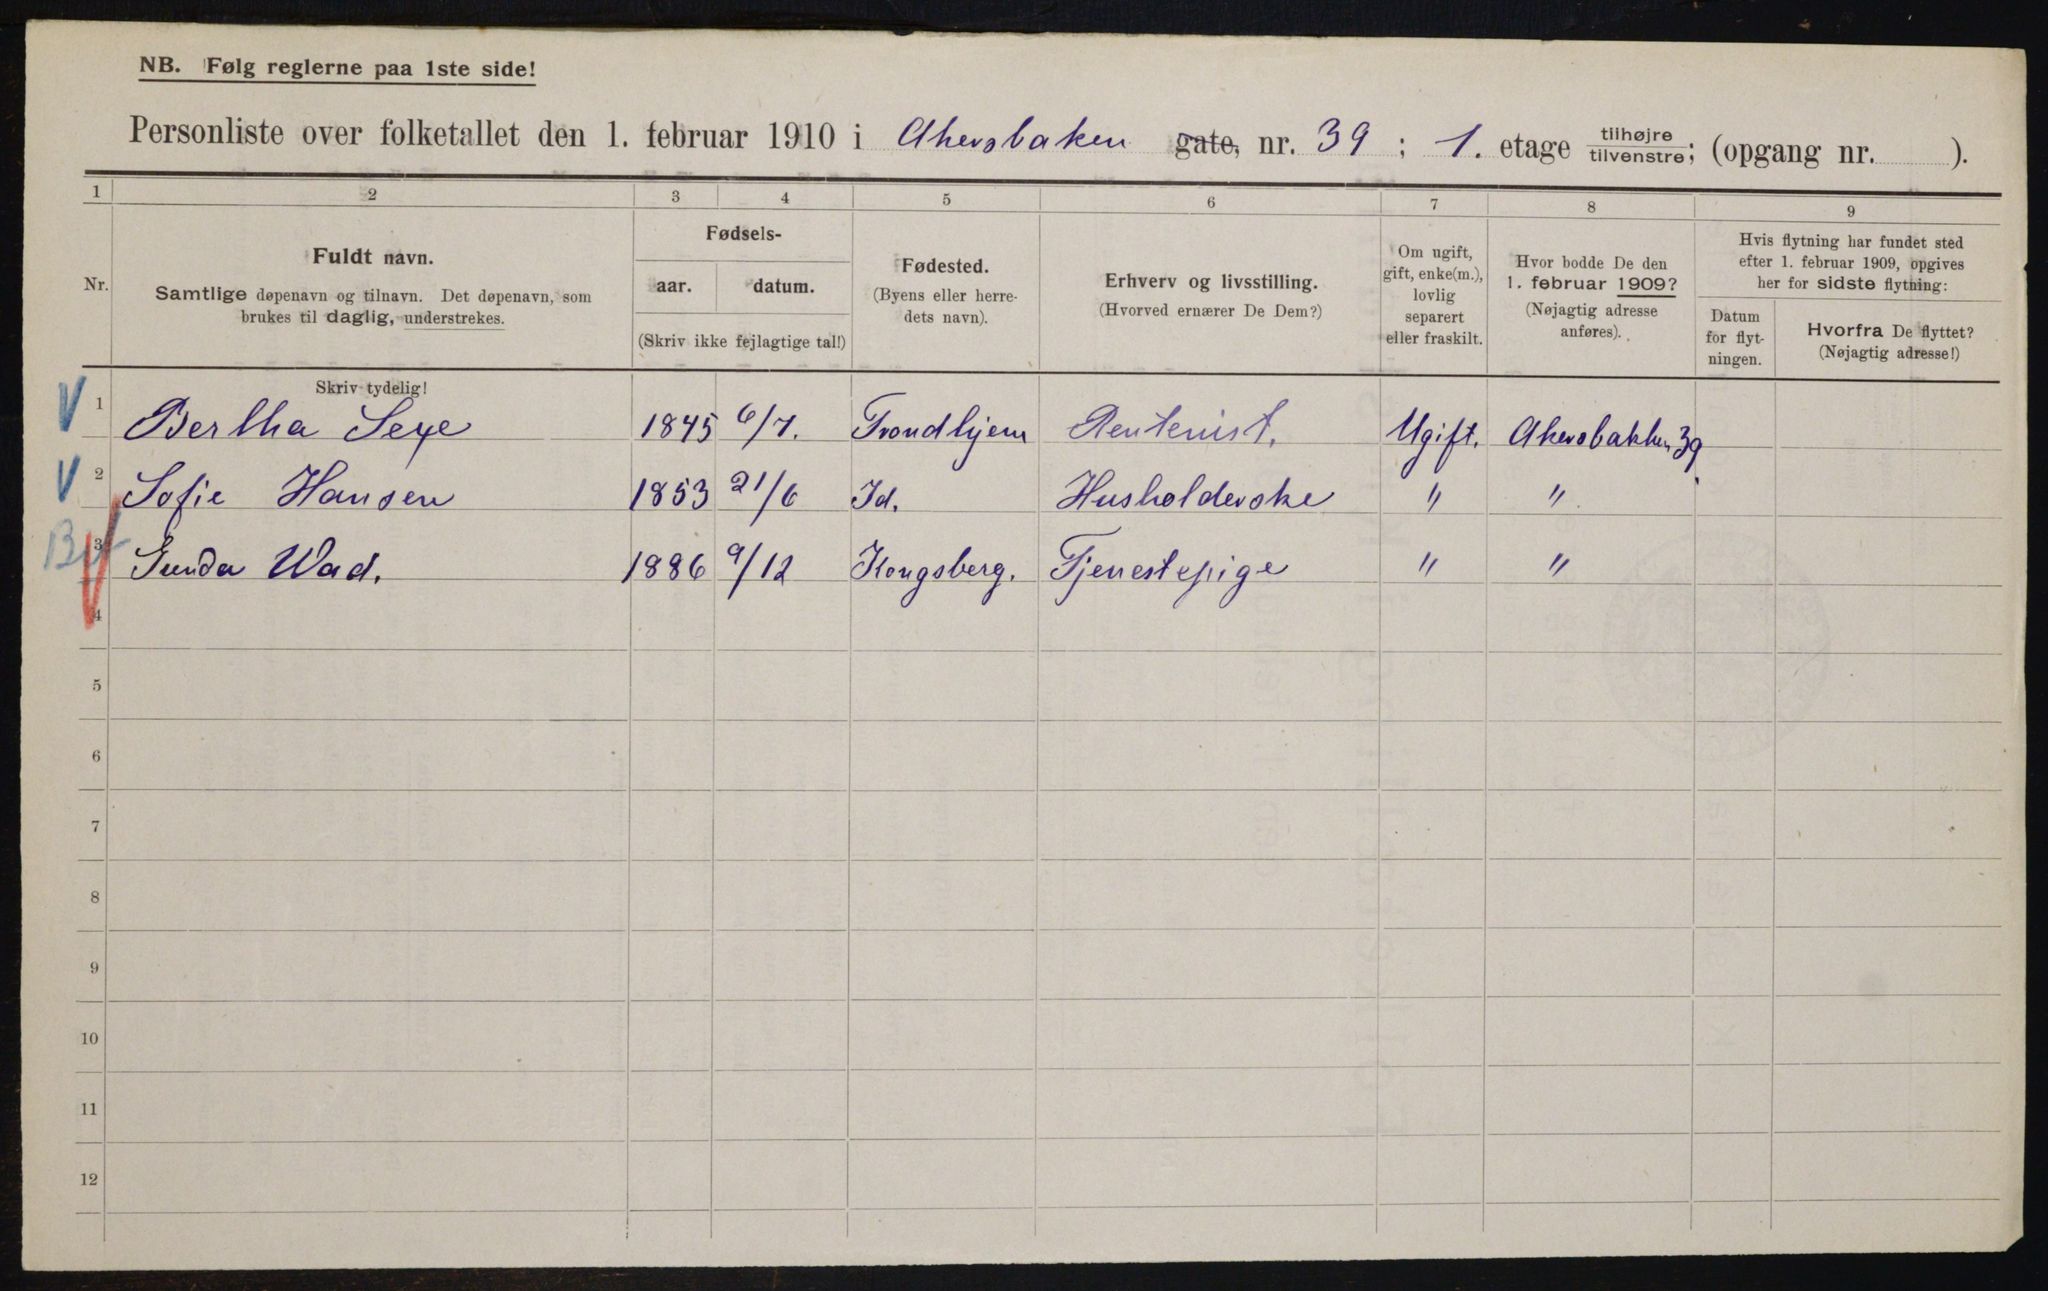 NB. Følg reglerne paa 1ste side!
Personliste over folketallet den 1. februar 1910 i Akersbaken gate, nr. 39 ; 1. etage tilhøjre tilvenstre; (opgang nr. ).
1 2 3 4 5 6 7 8 9
Nr.
Fuldt navn.
Samtlige døpenavn og tilnavn. Det døpenavn, som
brukes til daglig, understrekes.
Skriv tydelig!
Fødsels-
aar. datum.
(Skriv ikke fejlagtige tal!)
Fødested.
(Byens eller herre-
dets navn).
Erhverv og livsstilling.
(Hvorved ernærer De Dem?)
Om ugift,
gift, enke(m.),
lovlig
separert
eller fraskilt.
Hvor bodde De den
1. februar 1909?
(Nøjagtig adresse
anføres).
Hvis flytning har fundet sted
efter 1. februar 1909, opgives
her for sidste flytning:
Datum
for flyt-
ningen.
Hvorfra De flyttet?
(Nøjagtig adresse!)
V 1 Bertha Sexe 1845 6/7. Trondhjem Rentenist. Ugift. Akersbakken 39
V 2 Sofie Hansen 1853 21/6 Id. Husholderske " "
3 Gunda Wad. 1886 9/12 Kongsberg. Tjenestepige " "
4
5
6
7
8
9
10
11
12